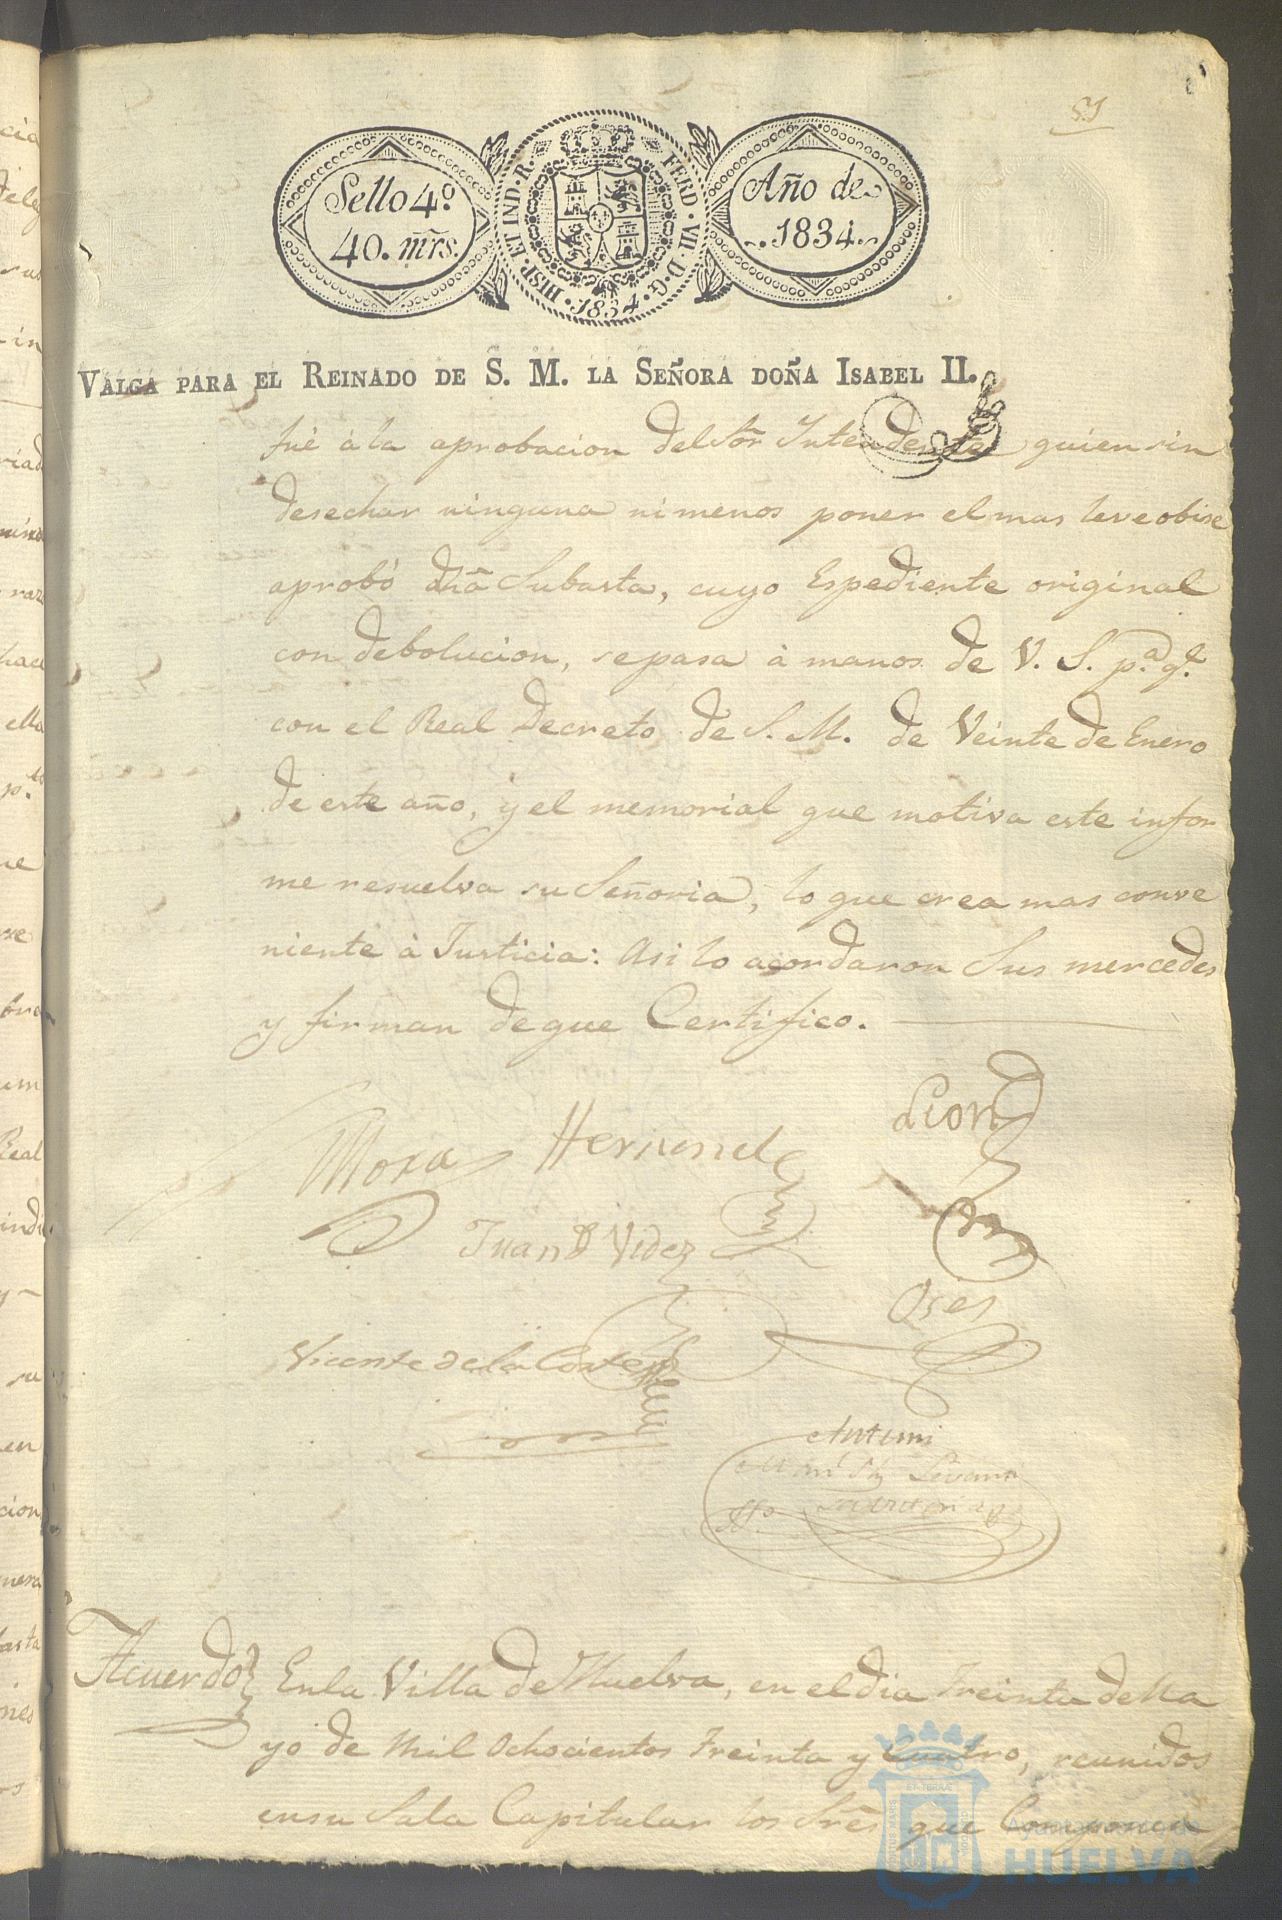 59
Sello 4º
40. mrs.
HISP. ET IND. R. FERD. VII. D. G. 1834.
Año de
1834.
VALGA PARA EL REINADO DE S. M. LA SEÑORA DOÑA ISABEL II.
fué à la aprobacion del Sor Intendente quien sin
desechar ninguna ni menos poner el mas leve obice
aprobó dha Subasta, cuyo Espediente original
con debolucion, se pasa à manos de V. S. pª qe
con el Real Decreto de S. M. de Veinte de Enero
de este año, y el memorial que motiva este infor
me resuelva su Señoria, lo que crea mas conve
niente à Justicia: Asi lo acordaron Sus mercedes
y firman de que Certifico.
Mora Hernandez Lion
Juan Videz
Oses
Vicente de la Corte
Antemi
Secretario
Acuerdo En la Villa de Huelva, en el dia Treinta de Ma
yo de Mil Ochocientos Treinta y Cuatro, reunidos
en su Sala Capitular los Sres que Componen
Ayuntamiento de
HUELVA